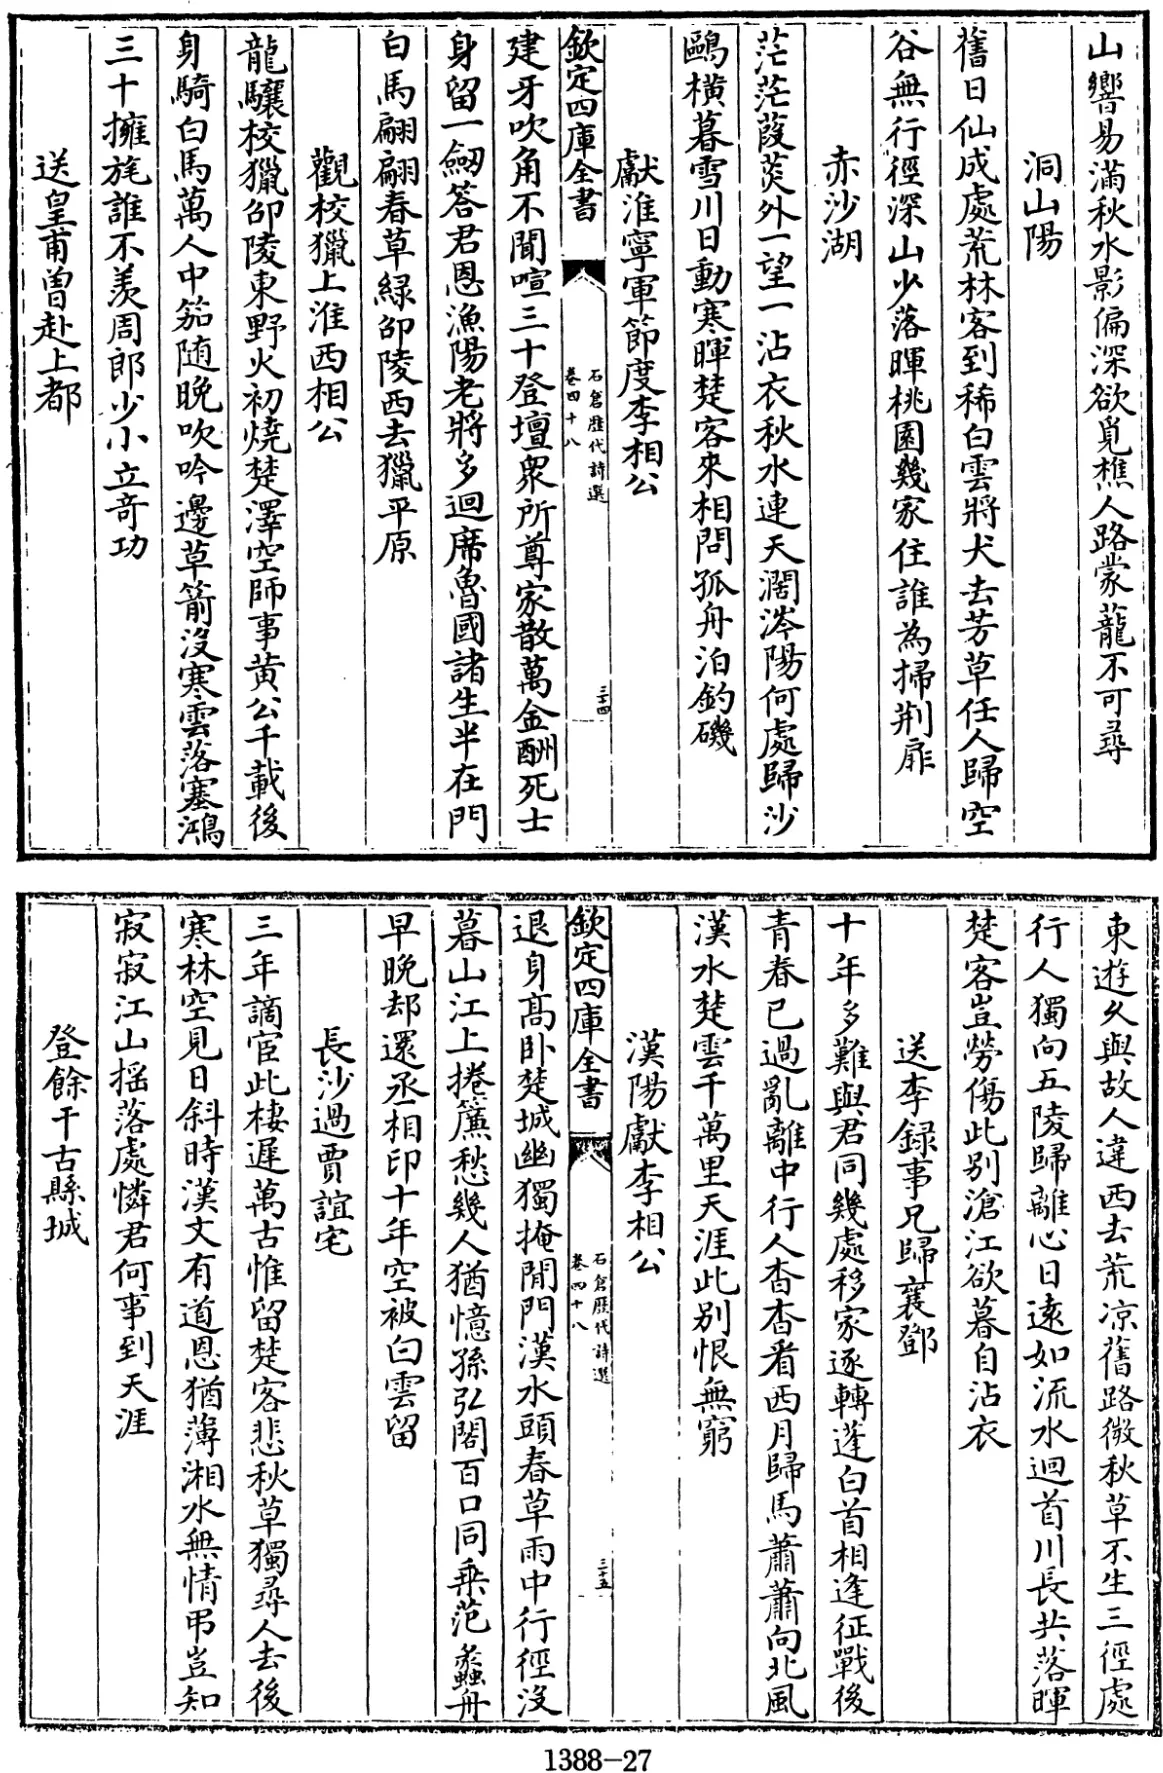 山響易滿秋水影偏深欲覓樵人路蒙蘢不可尋
洞山陽
舊日仙成處荒林客到稀白雲將犬去芳草任人歸空
谷無行徑深山少落暉桃園幾家住誰為掃荆扉
赤沙湖
茫茫葭菼外一望一沾衣秋水連天濶涔陽何處歸沙
鷗橫暮雪川日動寒暉楚客來相問孤舟泊釣磯
獻淮寧軍節度李相公
欽定四庫全書
石倉歷代詩選
卷四十八
三十四
建牙吹角不聞喧三十登壇衆所尊家散萬金酬死士
身留一劒答君恩漁陽老將多迴席魯國諸生半在門
白馬翩翩春草綠邵陵西去獵平原
觀校獵上淮西相公
龍驤校獵邵陵東野火初燒楚澤空師事黃公千載後
身騎白馬萬人中笳隨晚吹吟邊草箭沒寒雲落塞鴻
三十擁旄誰不羨周郎少小立奇功
送皇甫曾赴上都
東遊久與故人違西去荒凉舊路微秋草不生三徑處
行人獨向五陵歸離心日遠如流水迴首川長共落暉
楚客豈勞傷此别滄江欲暮自沾衣
送李録事兄歸襄鄧
十年多難與君同幾處移家逐轉蓬白首相逢征戰後
青春已過亂離中行人杳杳看西月歸馬蕭蕭向北風
漢水楚雲千萬里天涯此别恨無窮
漢陽獻李相公
欽定四庫全書
石倉歷代詩選
卷四十八
三十五
退身高卧楚城幽獨掩閒門漢水頭春草雨中行徑沒
暮山江上捲簾愁幾人猶憶孫弘閣百口同乗范蠡舟
早晚却還丞相印十年空被白雲留
長沙過賈誼宅
三年謫宦此棲遲萬古惟留楚客悲秋草獨尋人去後
寒林空見日斜時漢文有道恩猶薄湘水無情弔豈知
寂寂江山揺落處憐君何事到天涯
登餘干古縣城
1388-27